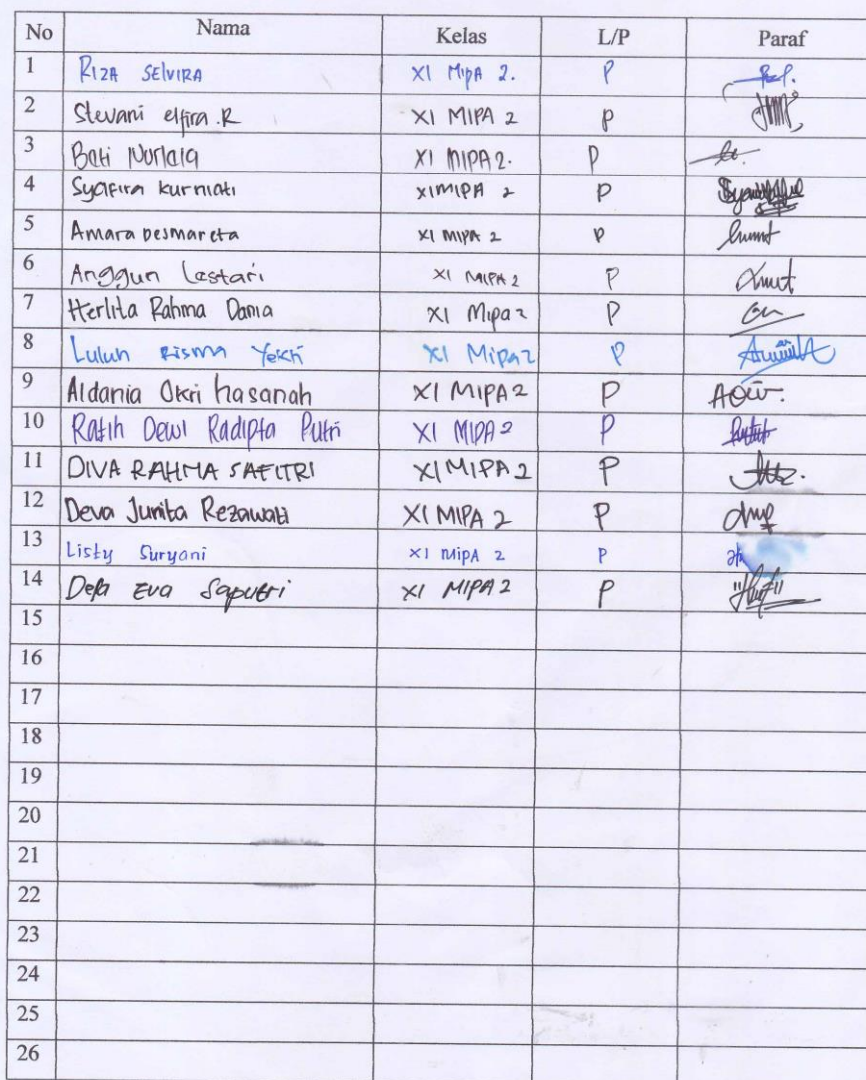 No Nama Kelas L/P Paraf
1 RIZA SELVIRA XI MIPA 2. P
2 Stevani elfira.R XI MIPA 2 P
3 Bati Nurlala XI MIPA 2. P
4 Syafira Kurniati XI MIPA 2 P
5 Amara Desmareta XI MIPA 2 P
6 Anggun Lestari XI MIPA 2 P
7 Herlita Rahma Dania XI Mipa 2 P
8 Luluh RISMA XI Mipa 2 P
9 Aldania Okri hasanah XI MIPA 2 P
10 Ratih Dewi Radipta Putri XI MIPA 2 P
11 DIVA RAHMA SAFITRI XI MIPA 2 P
12 Deva Junita Rezawati XI MIPA 2 P
13 Listy Suryani XI MIPA 2 P
14 Eva Saputri XI MIPA 2 P
15
16
17
18
19
20
21
22
23
24
25
26